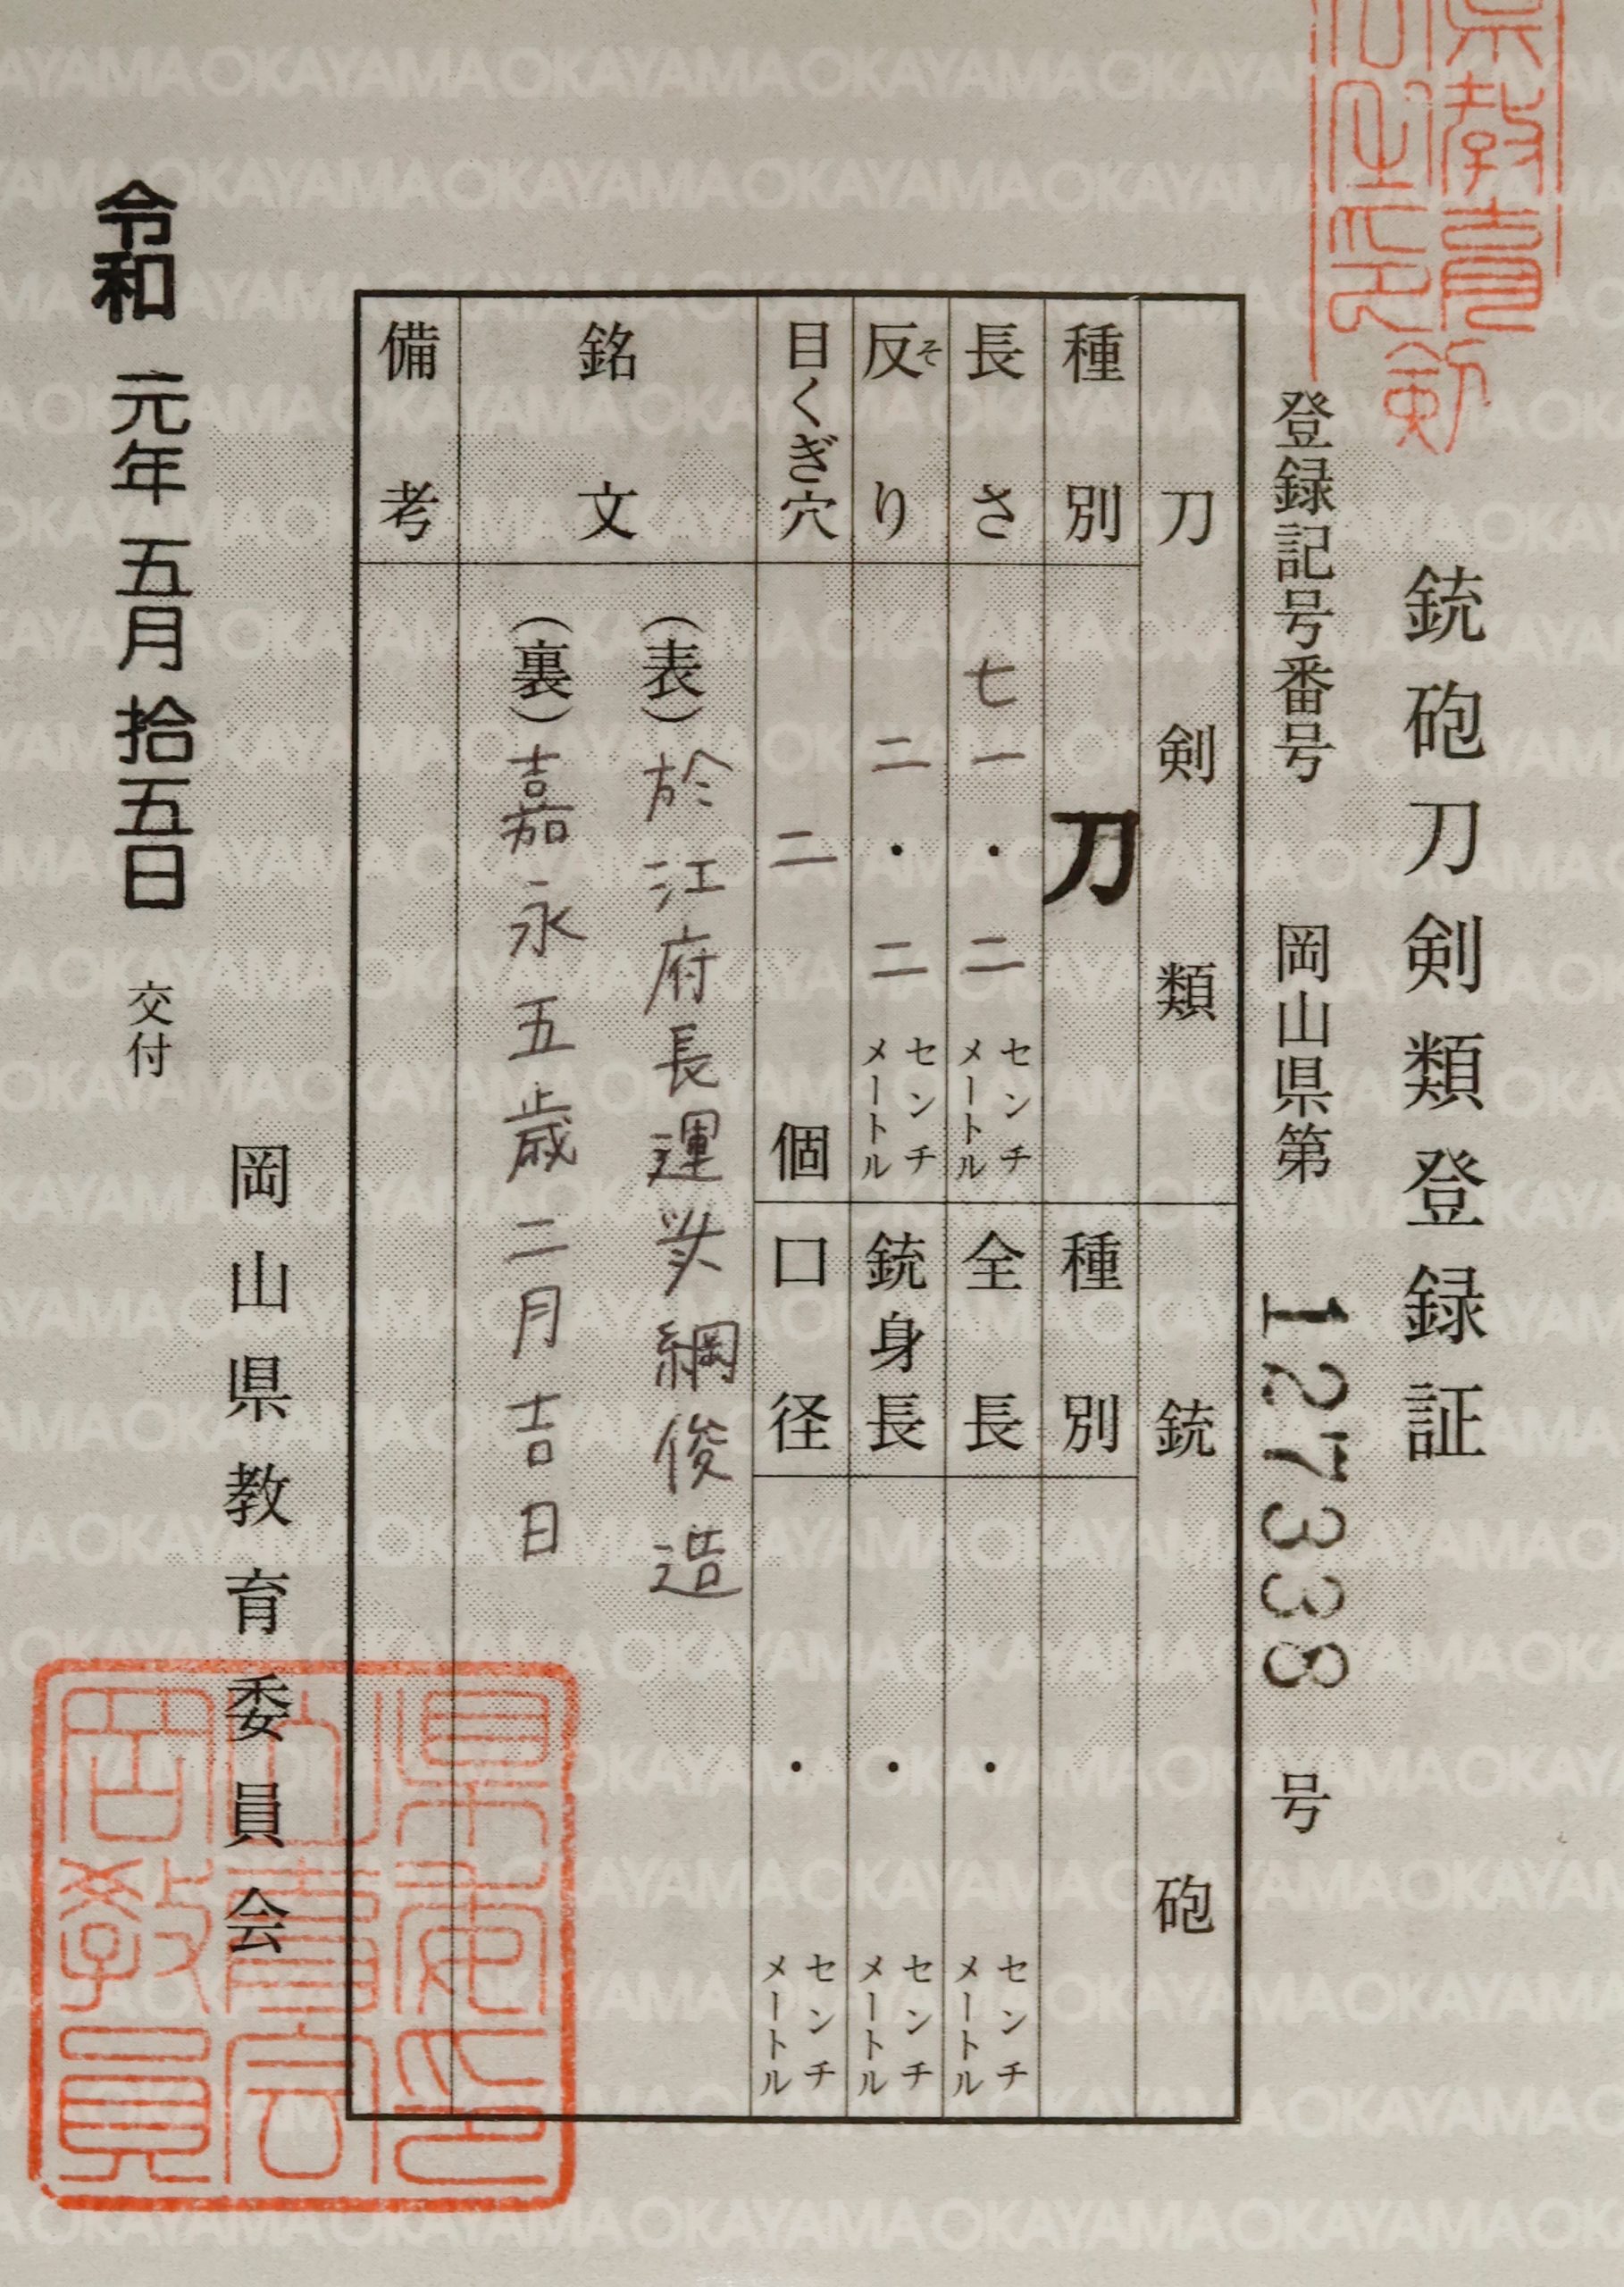 銃砲刀剣類登録証
登録記号番号 岡山県第 127338 号
刀剣類
種別 刀
長さ 七一・二 センチメートル
反り そ 二・二 センチメートル
目くぎ穴 二 個
銃砲
種別
全長 ・ センチメートル
銃身長 ・ センチメートル
口径 ・ センチメートル
銘文
(表)於江府長運斎綱俊造
(裏)嘉永五歳二月吉日
備考
岡山県教育委員会
令和元年五月拾五日 交付
OKAYAMA